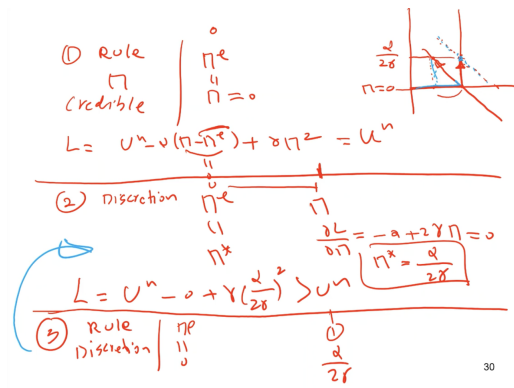 ① Rule
π
Credible
0
πᵉ
=
π = 0
α/2γ
π=0
L = Uⁿ - α(π - πᵉ) + γπ² = Uⁿ
=
0
② Discretion
πᵉ
=
π*
π
∂L/∂π = -a + 2γπ = 0
π* = α/2γ
L = Uⁿ - 0 + γ(α/2γ)² > Uⁿ
③ Rule
Discretion
πᵉ
=
0
①
α/2γ
30